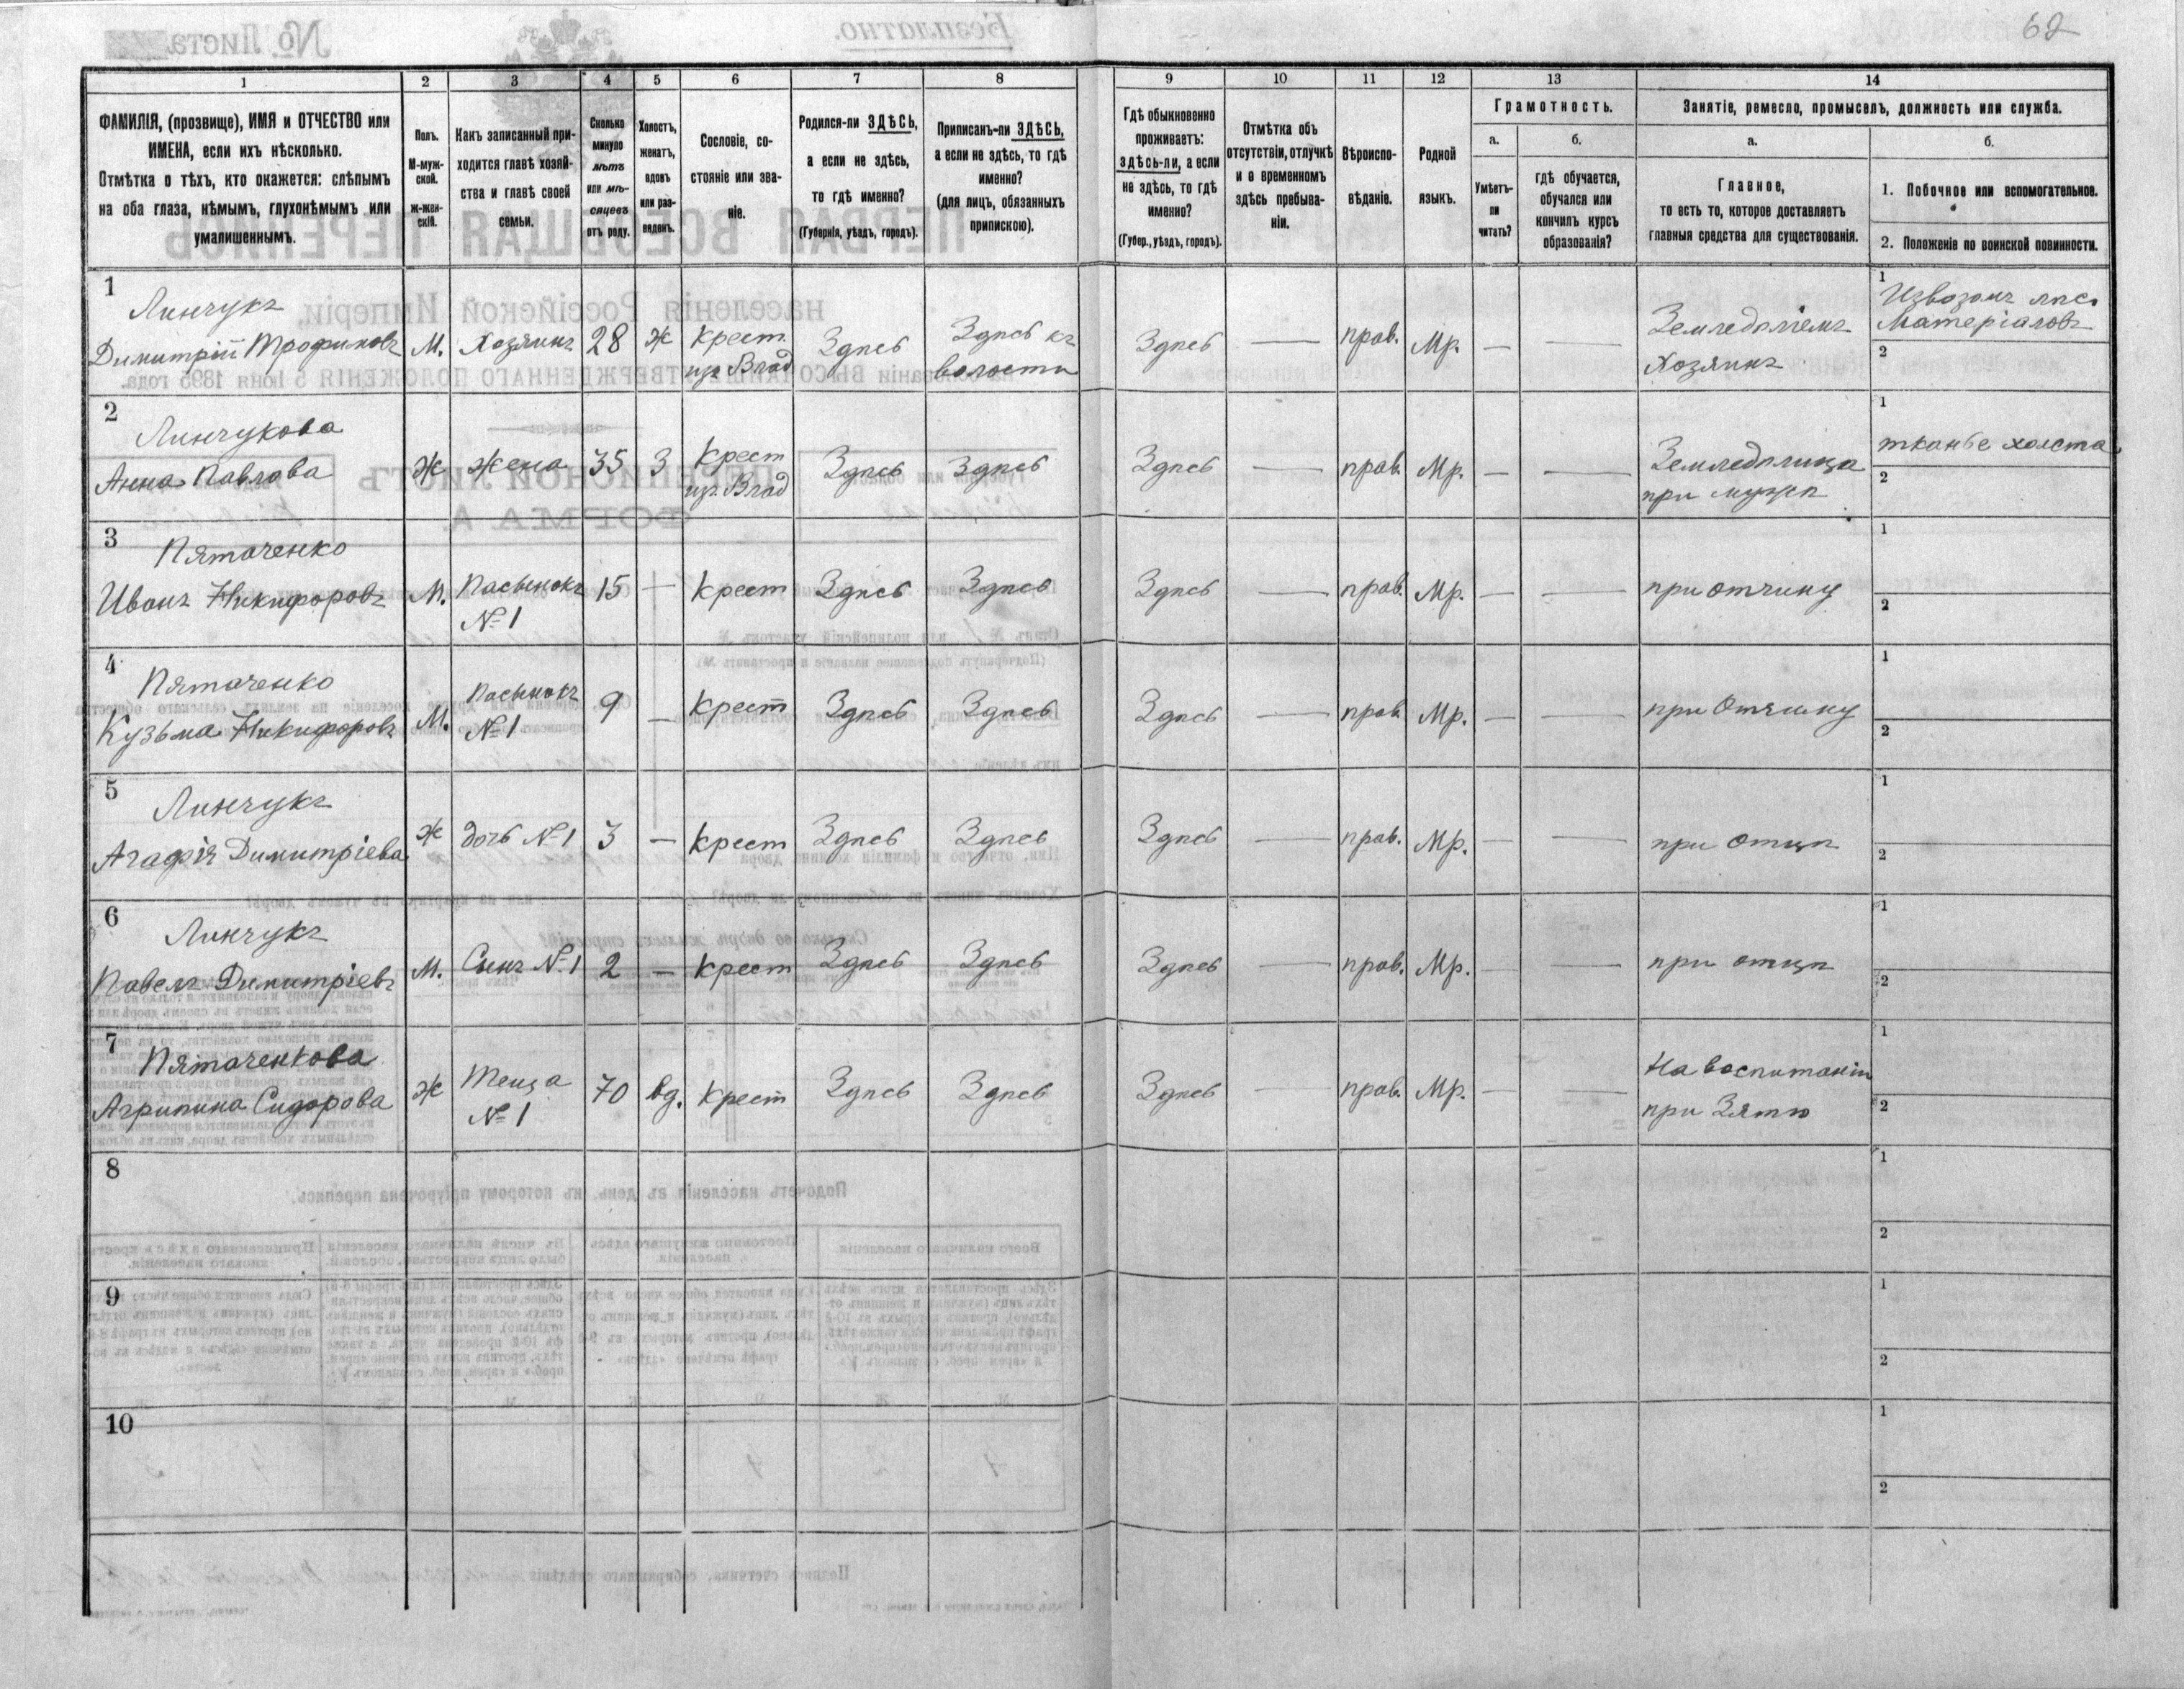 62
1 2 3 4 5 6 7 8 9 10 11 12 13 14
ФАМИЛІЯ, (прозвище), ИМЯ и ОТЧЕСТВО или
ИМЕНА, если ихъ нѣсколько.
Отмѣтка о тѣхъ, кто окажется: слѣпымъ
на оба глаза, нѣмымъ, глухонѣмымъ или
умалишеннымъ.
Полъ.
М-муж-
ской.
ж-жен-
скій.
Какъ записанный при-
ходится главѣ хозяй-
ства и главѣ своей
семьи.
Сколько
минуло
лѣтъ
или мѣ-
сяцевъ
отъ роду.
Холостъ,
женатъ,
вдовъ
или раз-
веденъ.
Сословіе, со-
стояніе или зва-
ніе.
Родился-ли ЗДѢСЬ,
а если не здѣсь,
то гдѣ именно?
(Губернія, уѣздъ, городъ).
Приписанъ-ли ЗДѢСЬ,
а если не здѣсь, то гдѣ
именно?
(для лицъ, обязанныхъ
припискою).
Гдѣ обыкновенно
проживаетъ:
здѣсь-ли, а если
не здѣсь, то гдѣ
именно?
(Губер., уѣздъ, городъ).
Отмѣтка объ
отсутствіи, отлучкѣ
и о временномъ
здѣсь пребыва-
ніи.
Вѣроиспо-
вѣданіе.
Родной
языкъ.
Грамотность.
а.
Умѣетъ-
ли
читать?
б.
гдѣ обучается,
обучался или
кончилъ курсъ
образованія?
Занятіе, ремесло, промыселъ, должность или служба.
а.
Главное,
то есть то, которое доставляетъ
главныя средства для существованія.
б.
1. Побочное или вспомогательное.
2. Положеніе по воинской повинности.
1
Линчукъ
Димитрій Трофимовъ М. Хозяинъ 28 Ж Крест. изъ Влад Здѣсь Здѣсь къ волости Здѣсь — прав. Мр. — — Земледѣліемъ Хозяинъ
1 Извозомъ лѣс. Матеріаловъ
2
2
Линчукова
Анна Павлова Ж жена 35 З Крест из. Влад Здѣсь Здѣсь Здѣсь — прав. Мр. — — Земледѣлица при мужѣ
1 тканье холста
2
3
Пятаченко
Иванъ Никифоровъ М. Пасынокъ №1 15 — Крест Здѣсь Здѣсь Здѣсь — прав. Мр. — — при отчиму
1
2
4
Пятаченко
Кузьма Никифоровъ М. Пасынокъ №1 9 — Крест Здѣсь Здѣсь Здѣсь — прав Мр. — — при Отчиму
1
2
5
Линчукъ
Агафія Димитріева Ж дочь №1 3 — Крест Здѣсь Здѣсь Здѣсь — прав. Мр. — — при отцѣ
1
2
6
Линчукъ
Павелъ Димитріевъ М. Сынъ №1 2 — Крест Здѣсь Здѣсь Здѣсь — прав. Мр. — — при отцѣ
1
2
7
Пятаченкова
Агрипина Сидорова Ж Теща №1 70 вд. Крест Здѣсь Здѣсь Здѣсь — прав. Мр. — — На воспитаніи при Зятю
1
2
8
1
2
9
1
2
10
1
2